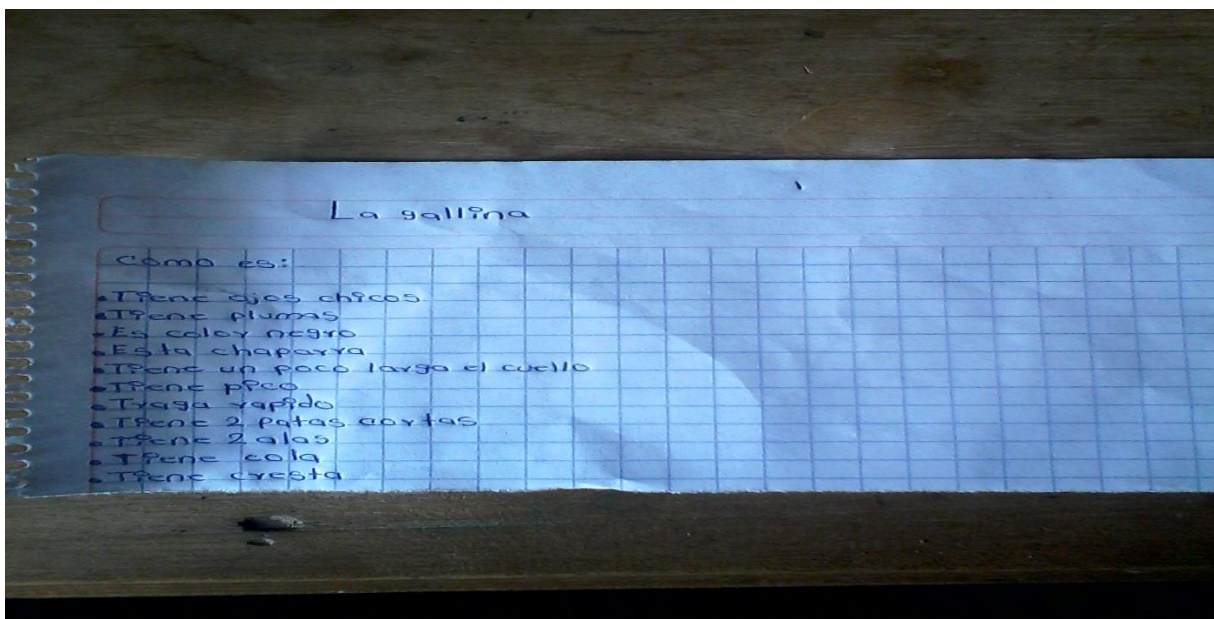 La gallina
Como es:
• Tiene ojos chicos
• Tiene plumas
• Es color negro
• Esta chaparra
• Tiene un poco larga el cuello
• Tiene pico
• Traga rapido
• Tiene 2 patas cortas
• Tiene 2 alas
• Tiene cola
• Tiene cresta